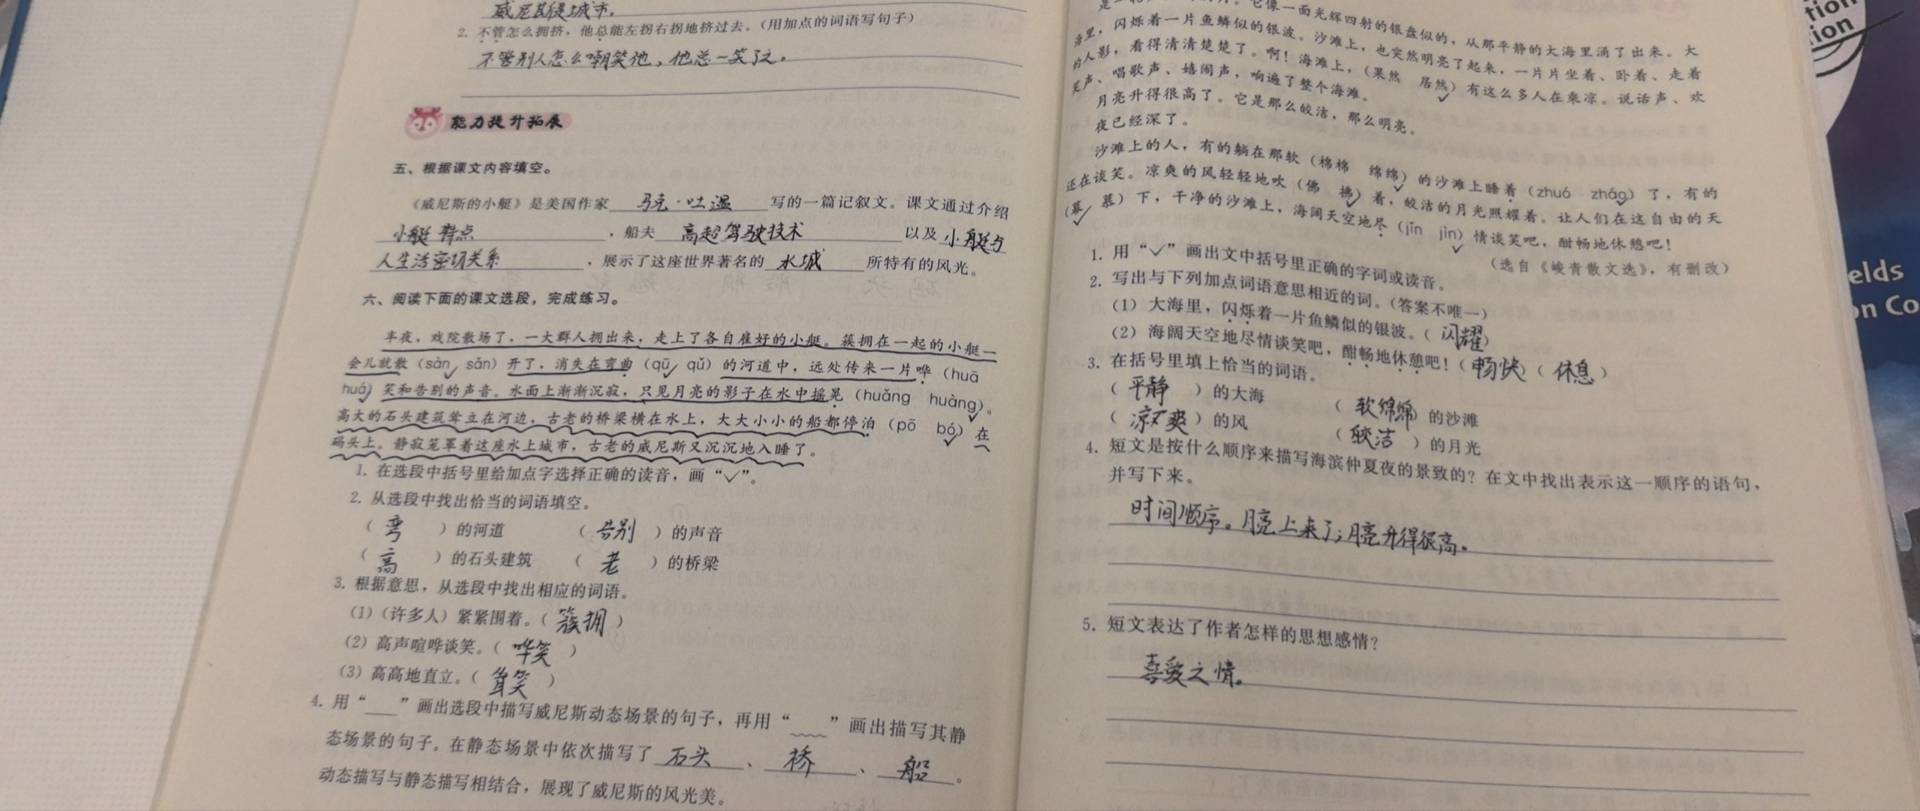 威尼斯徒城市。
2. 不管怎么拥挤，他总能左拐右拐地挤过去。（用加点的词语写句子）
不管别人怎么嘲笑他，他总一笑了之。
能力提升拓展
五、根据课文内容填空。
《威尼斯的小艇》是美国作家 马克·吐温 写的一篇记叙文。课文通过介绍
小艇特点，船夫 高超驾驶技术 以及 小艇与
人生活密切关系，展示了这座世界著名的 水城 所特有的风光。
六、阅读下面的课文选段，完成练习。
半夜，戏院散场了，一大群人拥出来，走上了各自雇好的小艇。簇拥在一起的小艇一
会儿就散（sàn√ sǎn）开了，消失在弯曲（qū√ qǔ）的河道中，远处传来一片哗（huā
huá√）笑和告别的声音。水面上渐渐沉寂，只见月亮的影子在水中摇晃（huǎng huàng√）。
高大的石头建筑耸立在河边，古老的桥梁横在水上，大大小小的船都停泊（pō bó√）在
码头上。静寂笼罩着这座水上城市，古老的威尼斯又沉沉地入睡了。
1. 在选段中括号里给加点字选择正确的读音，画“√”。
2. 从选段中找出恰当的词语填空。
（ 弯 ）的河道 （ 告别 ）的声音
（ 高 ）的石头建筑 （ 老 ）的桥梁
3. 根据意思，从选段中找出相应的词语。
（1）（许多人）紧紧围着。（ 簇拥 ）
（2）高声喧哗谈笑。（ 哗笑 ）
（3）高高地直立。（ 耸笑 ）
4. 用“___”画出选段中描写威尼斯动态场景的句子，再用“﹏﹏”画出描写其静
态场景的句子。在静态场景中依次描写了 石头 、 桥 、 船 。
动态描写与静态描写相结合，展现了威尼斯的风光美。
它像一面光辉四射的银盘似的，从那平静的大海里涌了出来。大
海里，闪烁着一片鱼鳞似的银波。沙滩上，也突然明亮了起来，一片片坐着、卧着、走着
的人影，看得清清楚楚了。啊！海滩上，（果然 居然√）有这么多人在乘凉。说话声、欢
笑声、唱歌声、嬉闹声，响遍了整个海滩。
月亮升得很高了。它是那么皎洁，那么明亮。
夜已经深了。
沙滩上的人，有的躺在那软（棉棉 绵绵√）的沙滩上睡着（zhuó zháo√）了，有的
还在谈笑。凉爽的风轻轻地吹（佛 拂√）着，皎洁的月光照耀着。让人们在这自由的天
（幕√ 慕）下，干净的沙滩上，海阔天空地尽（jǐn jìn√）情谈笑吧，酣畅地休憩吧！
（选自《峻青散文选》，有删改）
1. 用“√”画出文中括号里正确的字词或读音。
2. 写出与下列加点词语意思相近的词。（答案不唯一）
（1）大海里，闪烁着一片鱼鳞似的银波。（ 闪耀 ）
（2）海阔天空地尽情谈笑吧，酣畅地休憩吧！（ 畅快 ）（ 休息 ）
3. 在括号里填上恰当的词语。
（ 平静 ）的大海 （ 软绵绵 ）的沙滩
（ 凉爽 ）的风 （ 皎洁 ）的月光
4. 短文是按什么顺序来描写海滨仲夏夜的景致的？在文中找出表示这一顺序的语句，
并写下来。
时间顺序。月亮上来了；月亮升得很高。
5. 短文表达了作者怎样的思想感情？
喜爱之情。
tion
tion
elds
on Co